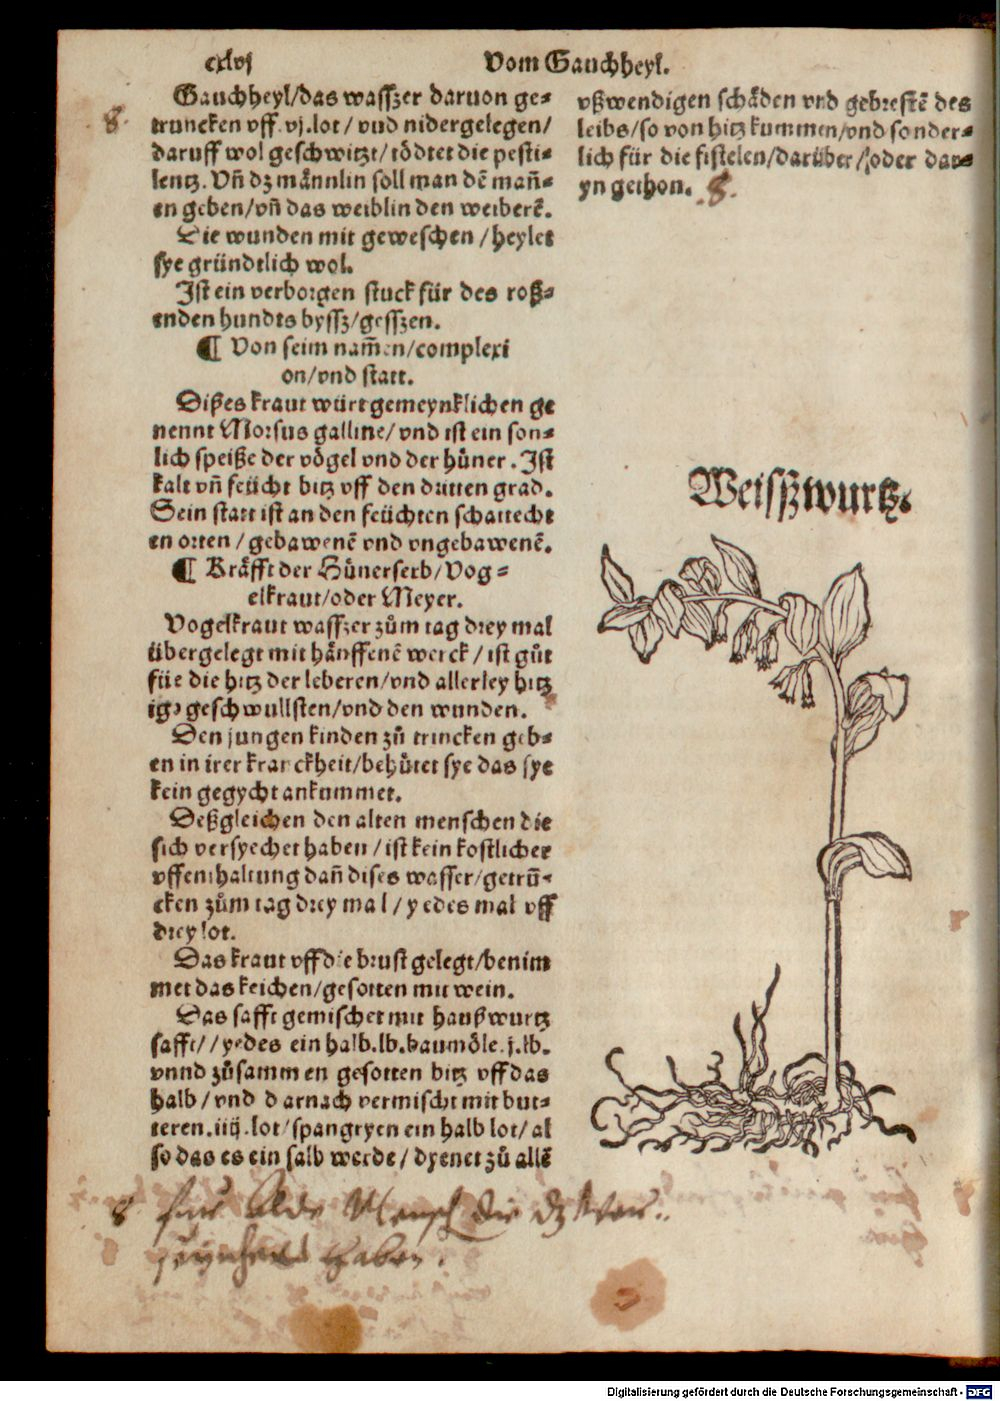 cxlvj
Vom Gauchheyl.
Gauchheyl/das wasszer daruon ge⸗
truncken vff .vj.lot / vnd nidergelegen/
daruff wol geschwitzt/tödtet die pesti⸗
lentz. Vn̄ dz männlin soll man dē man̄⸗
en geben/vn̄ das weiblin den weiberē.
Die wunden mit geweschen /heylet
sye gründtlich wol.
Ist ein verborgen stuck für des roß⸗
enden hundts byssz/gesszen.
¶ Von seim nam̄en/complexi
on/vnd statt.
Dißes kraut würt gemeynklichen ge
nennt Morsus galline/vnd ist ein son⸗
lich speiße der vögel vnd der hüner . Ist
kalt vn̄ feücht bitz vff den dritten grad.
Sein statt ist an den feüchten schattecht
en orten / gebawenē vnd vngebawenē.
¶ Kräfft der Hünerserb/Vog⸗
elkraut/oder Meyer.
Vogelkraut wasszer zům tag drey mal
übergelegt mit hänffenē werck / ist gůt
für die hitz der leberen/vnd allerley hitz
ige geschwullsten/vnd den wunden.
Den jungen kinden zů trincken geb⸗
en in irer kranckheit/behütet sye das sye
kein gegycht ankummet.
Deßgleichen den alten menschen die
sich versyechet haben / ist kein kostlicher
vffenthaltung dan̄ dises wasser/getrū⸗
cken zům tag drey mal / yedes mal vff
drey lot.
Das kraut vff die brust gelegt/benim
met das keichen/gesotten mit wein.
Das safft gemischet mit haußwurtz
safft//yedes ein halb.lb.baumöle.j.lb.
vnnd zůsammen gesotten bitz vff das
halb /vnd darnach vermischt mit but⸗
teren.iiij.lot/spangryen ein halb lot/al
so das es ein salb werde / dyenet zů allē
vßwendigen schäden vnd gebrestē des
leibs/so von hitz kummen/vnd sonder⸗
lich für die fistelen/darüber/oder dar⸗
yn gethon.
.8.
Weisszwurtz.
.8.
8 für alde Mensch die dz
haben.
Digitalisierung gefördert durch die Deutsche Forschungsgemeinschaft - DFG